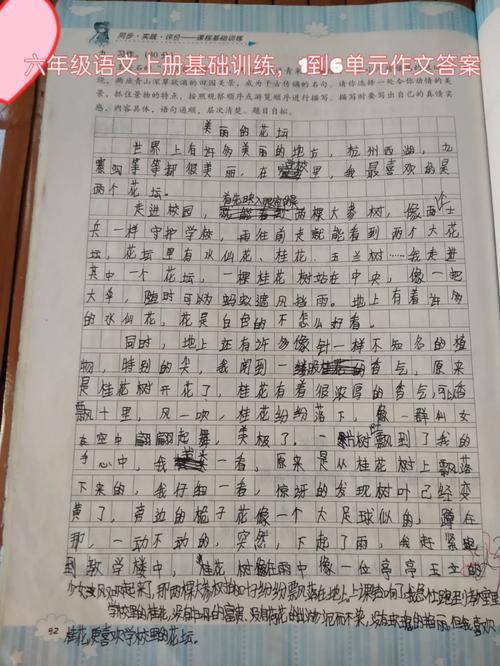 同步·实践·评价——课程基础训练
九、习作。（30分）
六年级语文上册基础训练，1到6单元作文答案
境，两岸青山深翠欲滴的田园美景，成为千古传诵的名句。请你选择一处令你动情的美
景，抓住景物的特点，按照观察顺序或游览顺序进行描写。描写时要写出自己的真情实
感。内容具体，语句通顺，层次清楚。题目自拟。
美丽的花坛
世界上有好多美丽的地方，杭州西湖，九
寨沟等等都很美丽，在学校里，我最喜欢的是
两个花坛。
首先映入眼帘
走进校园，两棵大象树，像两个士
兵一样守护学校，再往前走就能看到两个大花
坛，花坛里有水仙花、桂花、玉兰树……我走进
其中一个花坛，一棵桂花树站在中央，像一把
大伞，随时可以为蚂蚁遮风挡雨。地上有着许多
的水仙花，花是白色的不怎么好看。
同时，地上还有许多像针一样不知名的植
物，特别的尖，我闻到一的香气，原来
是桂花树开花了，桂花有着很浓厚的香气，可以香
飘十里，风一吹，桂花纷纷落下，像一群仙女
在空中翩翩起舞，美极了，一树叶飘到了我的
手心中，我一看，原来是从桂花树上飘落
下来的，我仔细一看，惊讶的发现树叶已经变
黄了，旁边的栀子花像一个大足球似的，蹲在
那，一动不动的，突然，下起了雨，我赶紧跑
到教学楼中，桂花树在雨中像一位亭亭玉立的
少女，风吹起来了，那两棵大象树的叶子纷纷飘落在地上，上课铃响了，我急忙跑到教室里
学校里的桂花，没有牡丹的富贵，没有荷花的出淤泥而不染，没有玫瑰的艳丽，但我喜欢
桂花，更喜欢学校里的花坛。
92